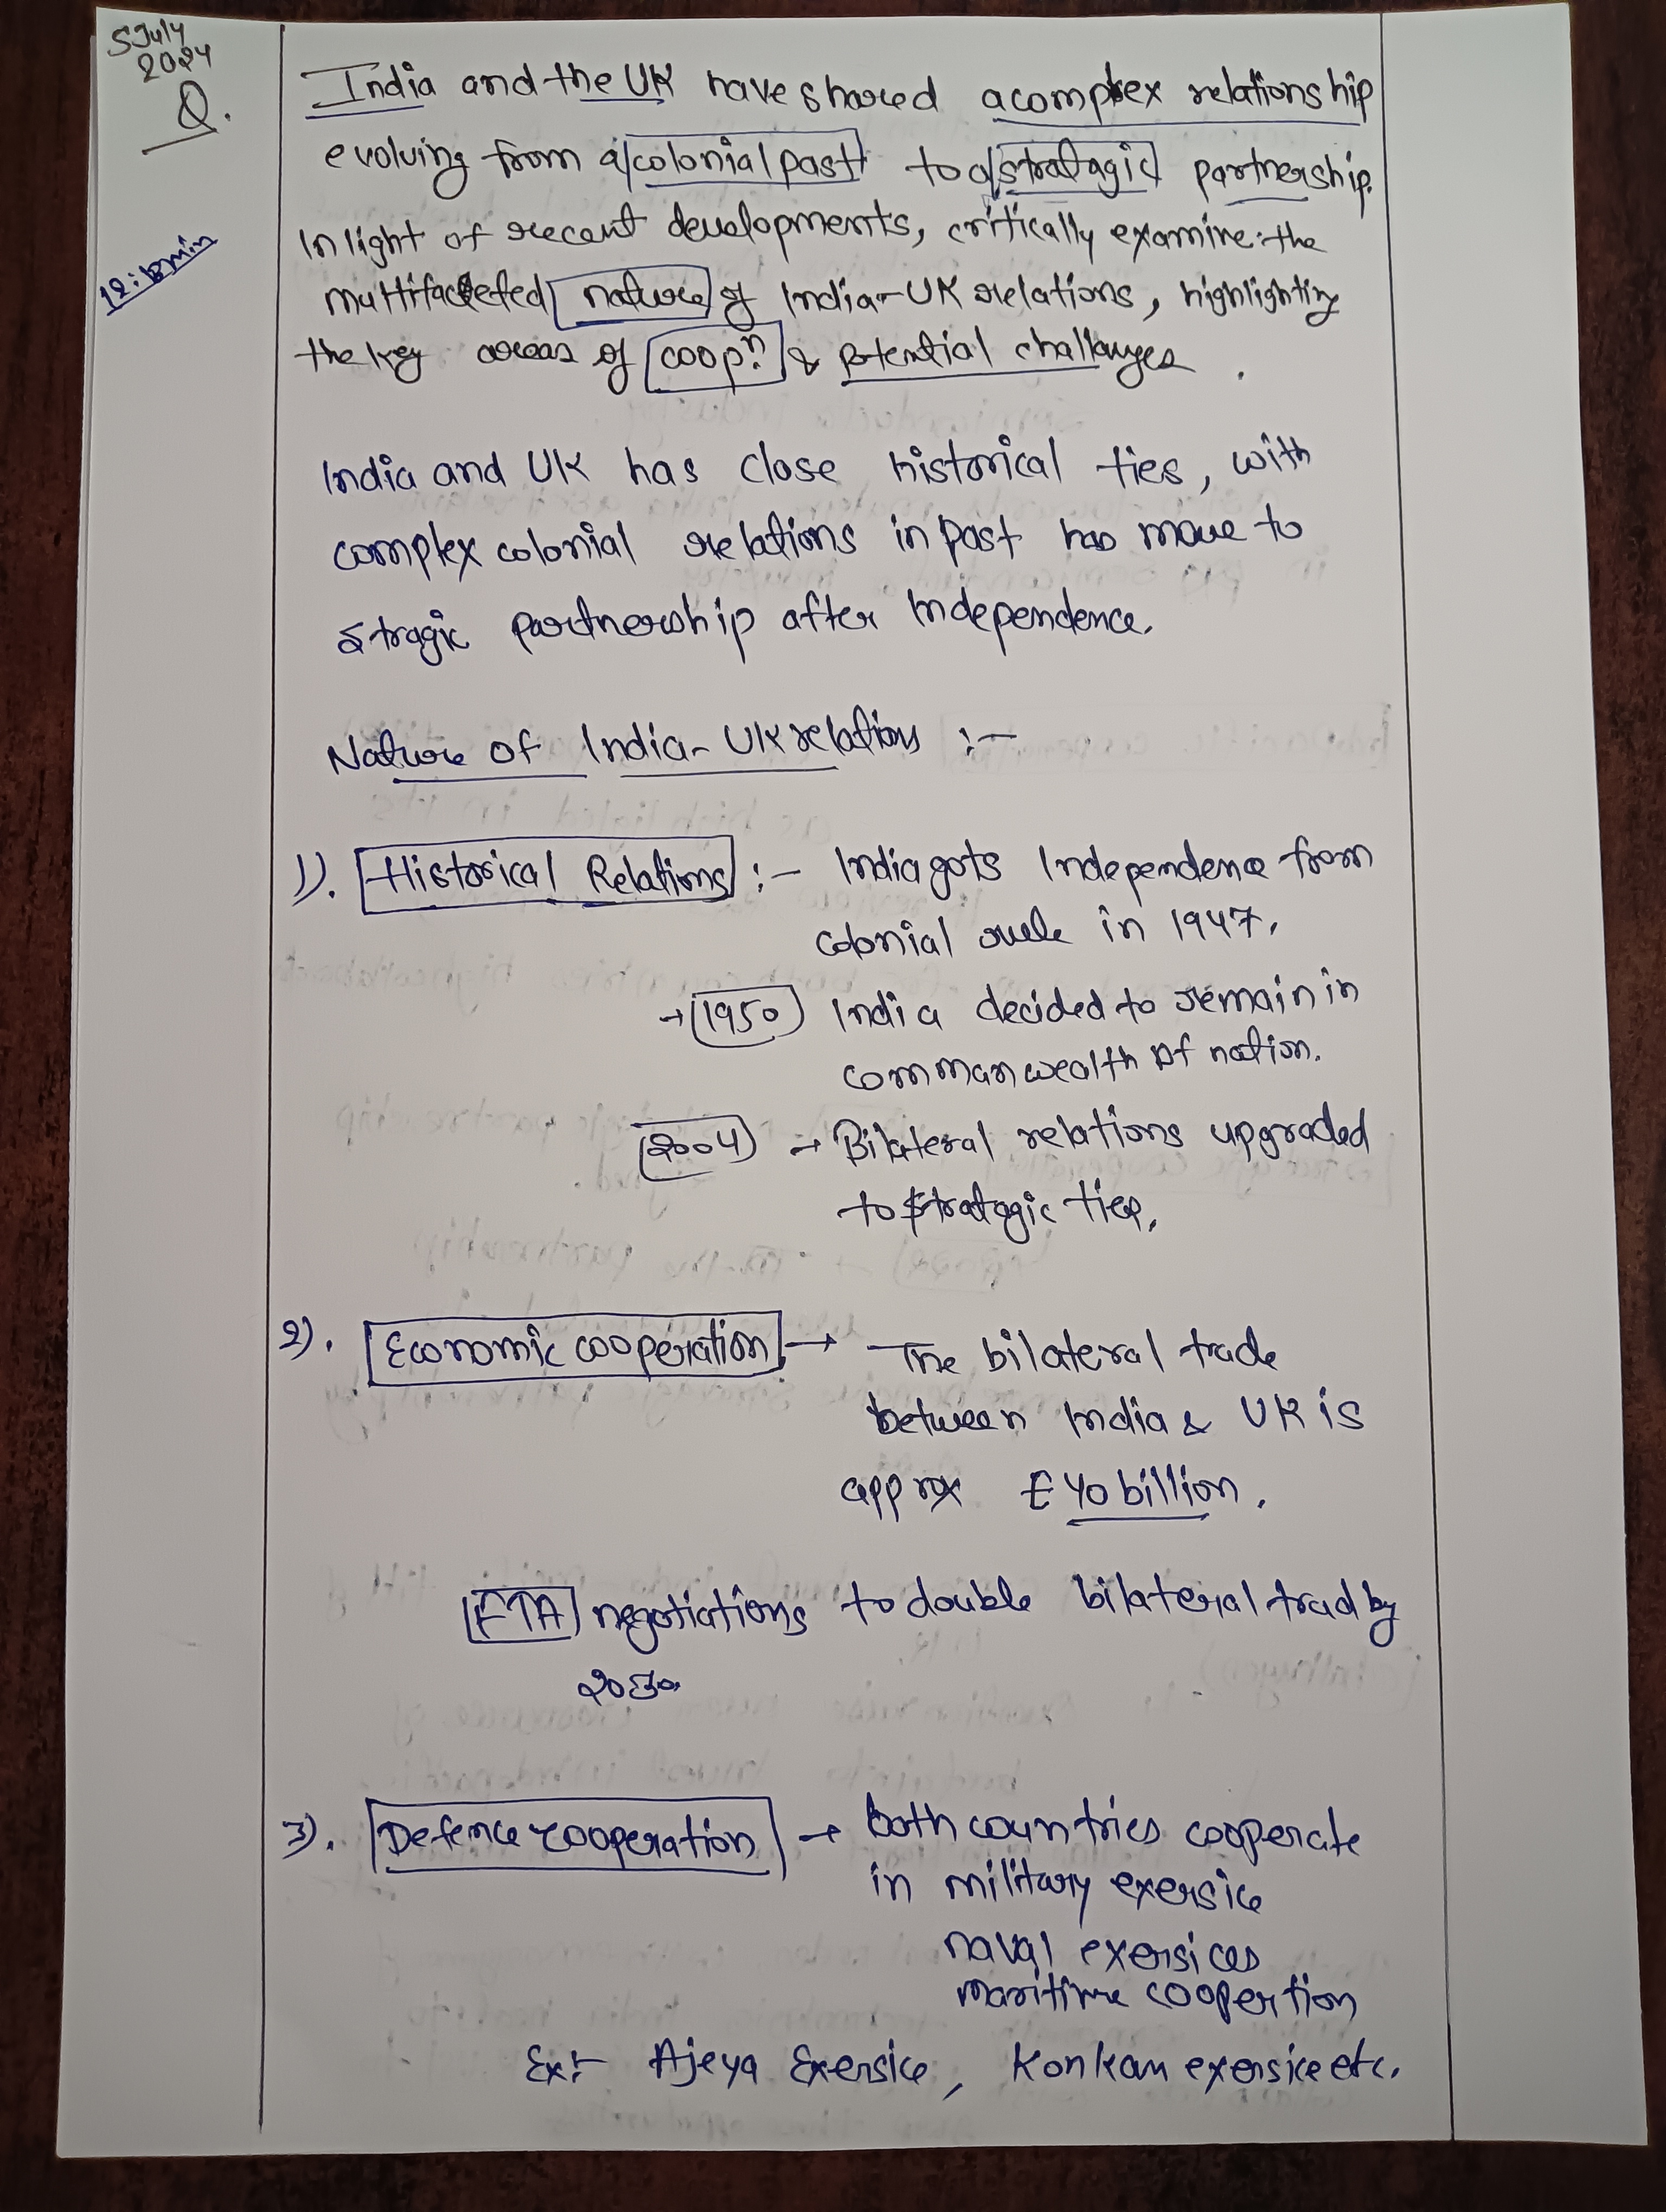 5 July
2024
Q.
12:18min
India and the UK have shared a complex relationship
evolving from a colonial past to a stratagic partnership.
In light of recent developments, critically examine the
multifaceted nature of India-UK relations, highlighting
the key areas of coopn & potential challanges.
India and UK has close historical ties, with
complex colonial relations in past has move to
stragic partnership after Independence.
Nature of India-UK relations :-
1). Historical Relations :- India gots Independence from
colonial rule in 1947.
→ 1950 India decided to remain in
commanwealth of nation.
2004 → Bilateral relations upgraded
to stratagic ties.
2). Economic cooperation → The bilateral trade
between India & UK is
approx £40 billion.
FTA negotiations to double bilateral trad by
2030
3). Defence cooperation → both countries cooperate
in military exersice
naval exersices
maritime coopertion
Ex:- Ajeya Exersice, Konkan exersice etc.